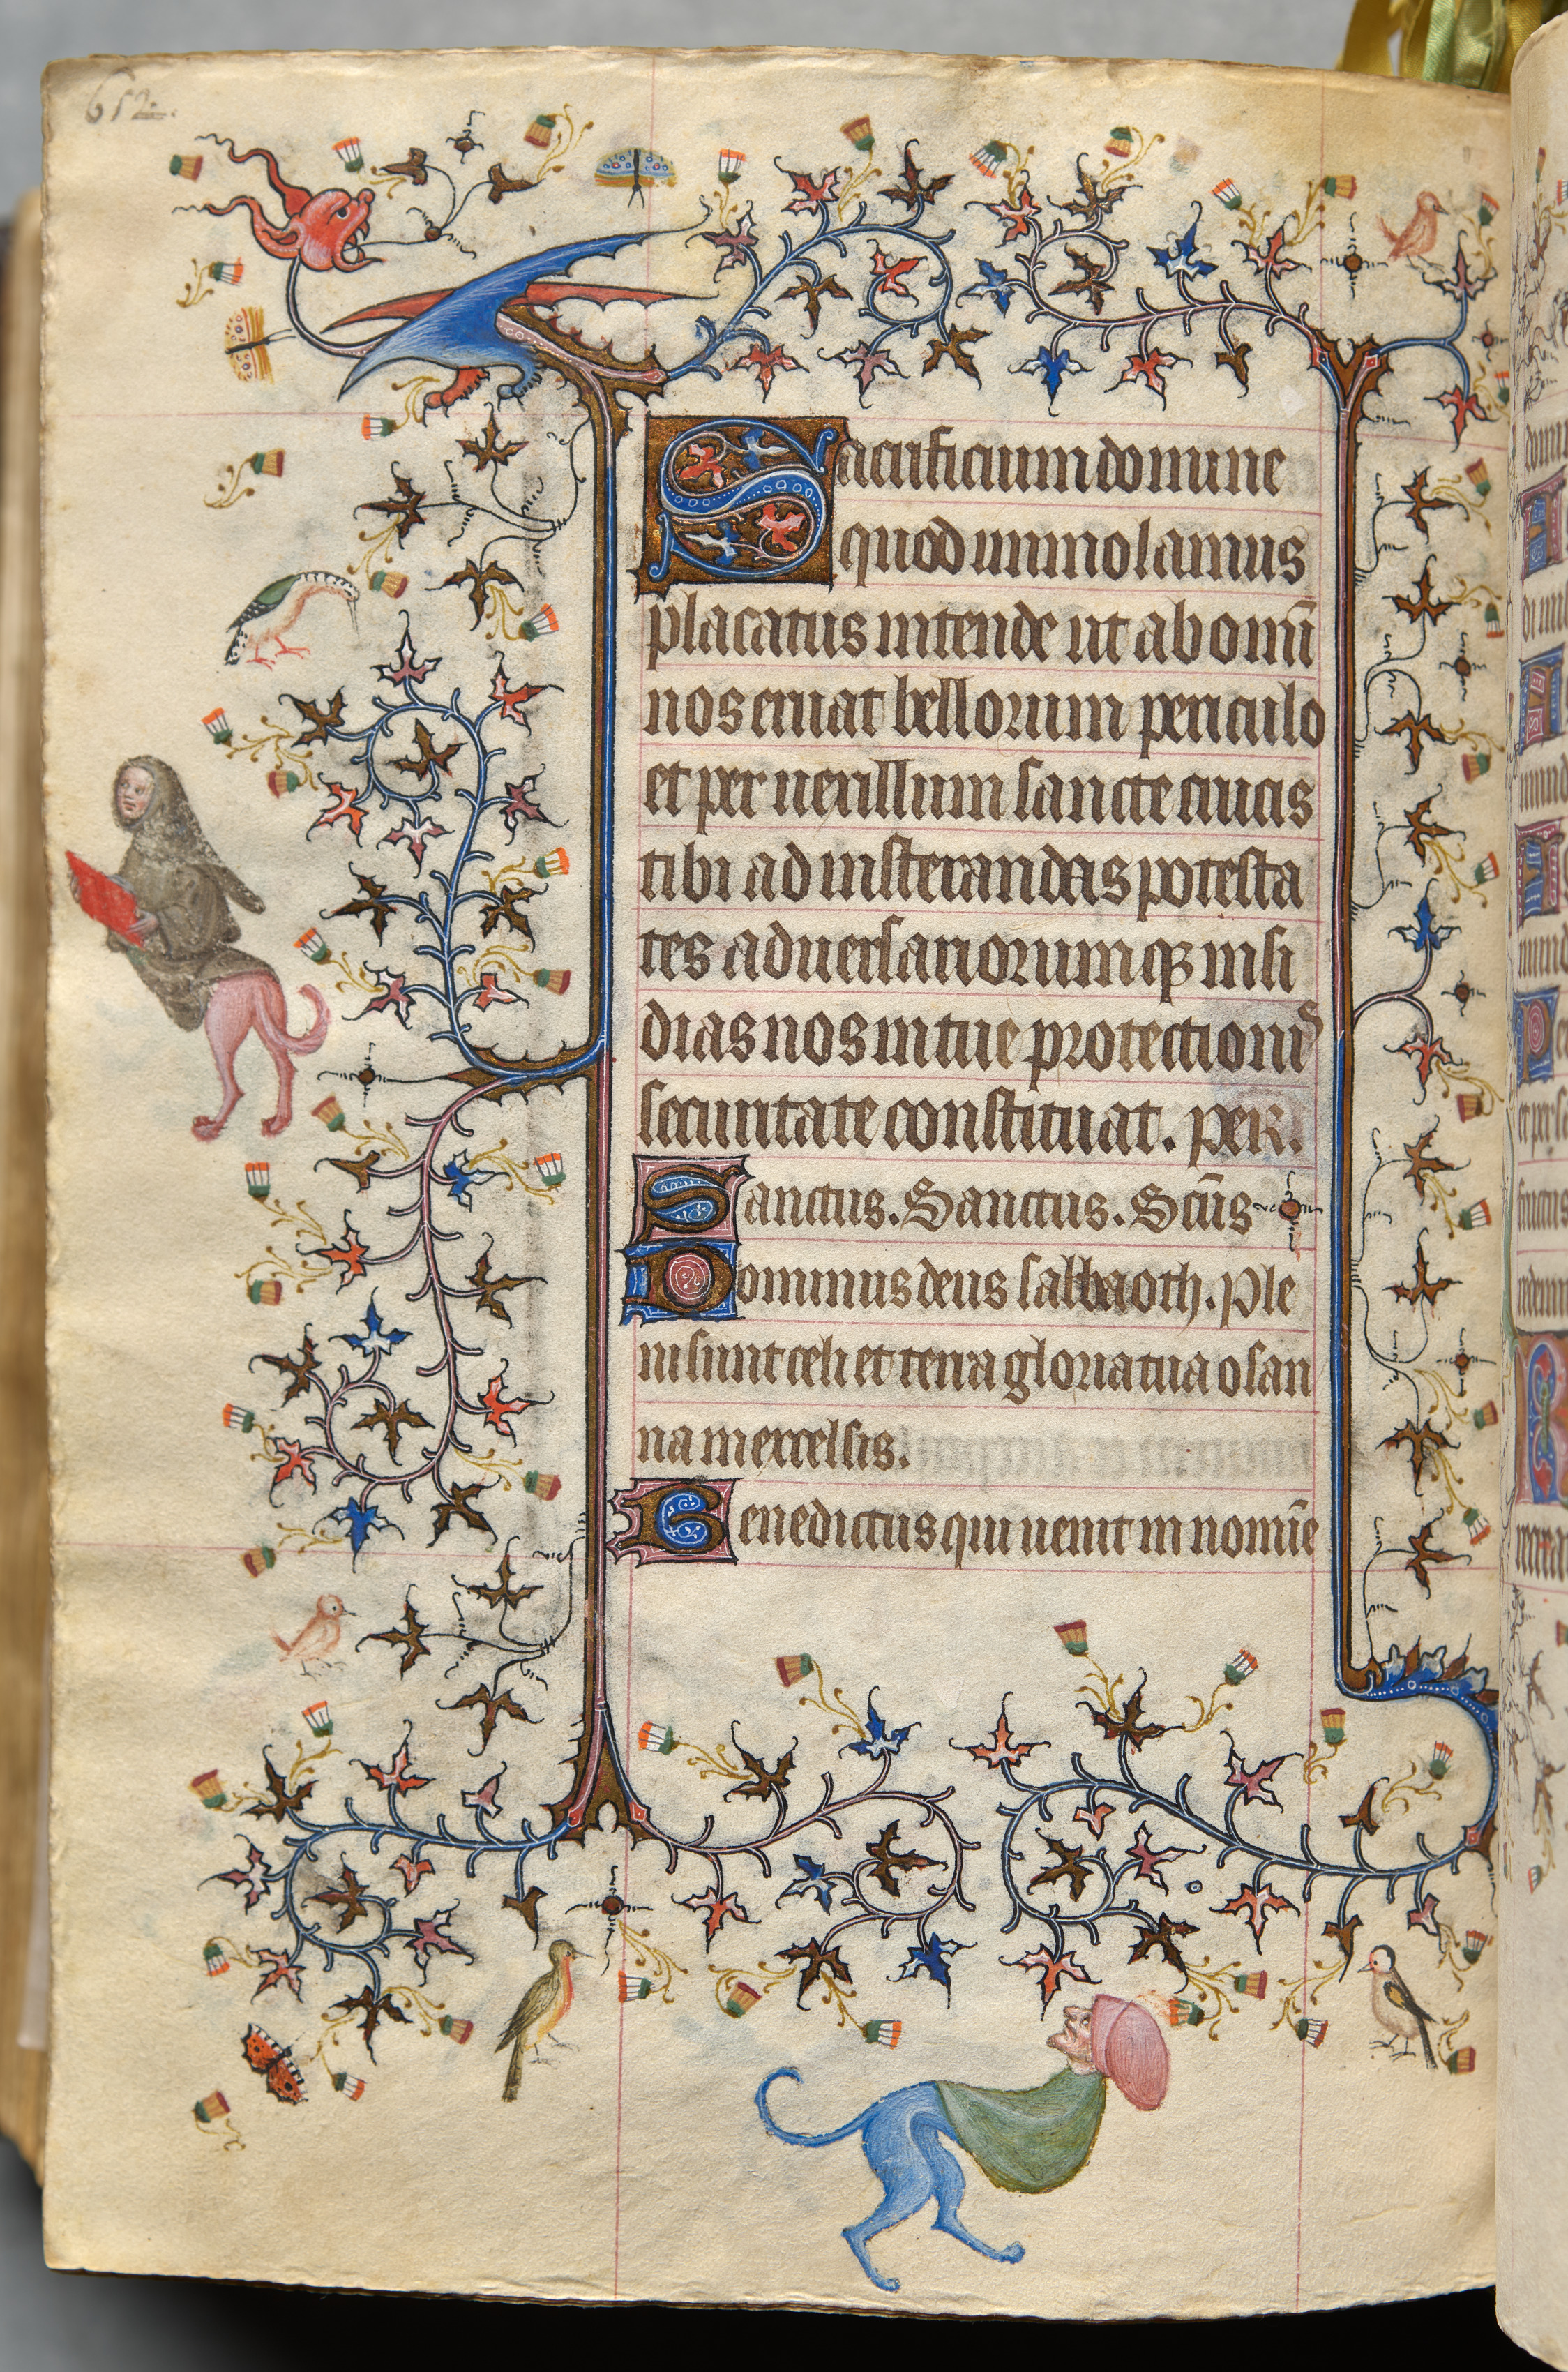 612.
Sacrificium domine
quod immolamus
placatus intende ut ab omni
nos eruat bellorum periculo
et per uexillum sancte crucis
tibi ad insterandas potesta
tes aduersariorumqꝫ insi
dias nos in tue protectionis
securitate constituat. per.
Sanctus. Sanctus. Scūs
Dominus deus sabbaoth. Ple
ni sunt celi et terra gloria tua osan
na in excelsis.
Benedictus qui uenit in nomīe